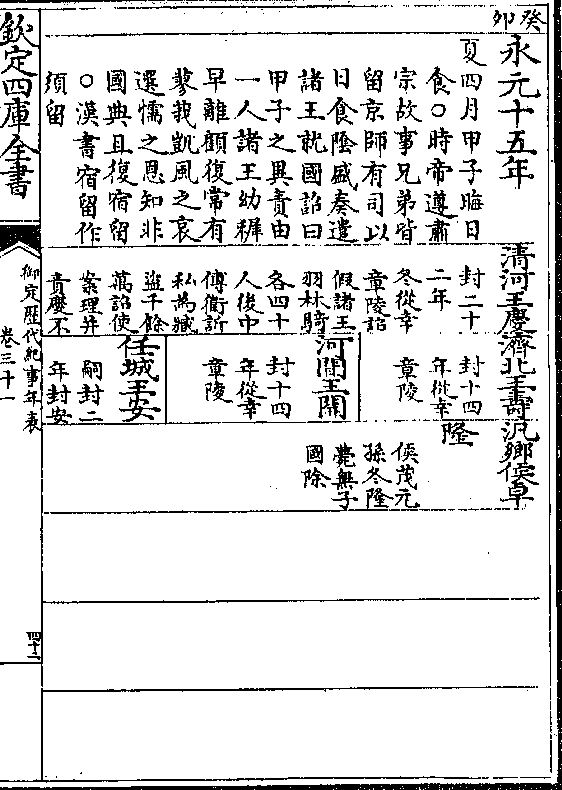 癸卯
永元十五年
夏四月甲子晦日
食〇時帝遵肅
宗故事兄弟皆
留京師有司以
日食陰盛奏遣
諸王就國詔曰
甲子之異責由
一人諸王幼穉
早離顧復常有
蓼莪凱風之哀
選懦之恩知非
國典且復宿留
〇漢書宿留作
須留
清河王慶
封二十
二年
冬從幸
章陵詔
假諸王
羽林騎
各四十
人後中
傅衛訢
私為臧
盜千餘
萬詔使
案理并
責慶不
濟北王壽
封十四
年從幸
章陵
河間王開
封十四
年從幸
章陵
任城王安
嗣封二
年封安
汎鄉侯卓
隆
侯茂元
孫冬隆
薨無子
國除
欽定四庫全書
御定歷代紀事年表
卷三十一
四十二